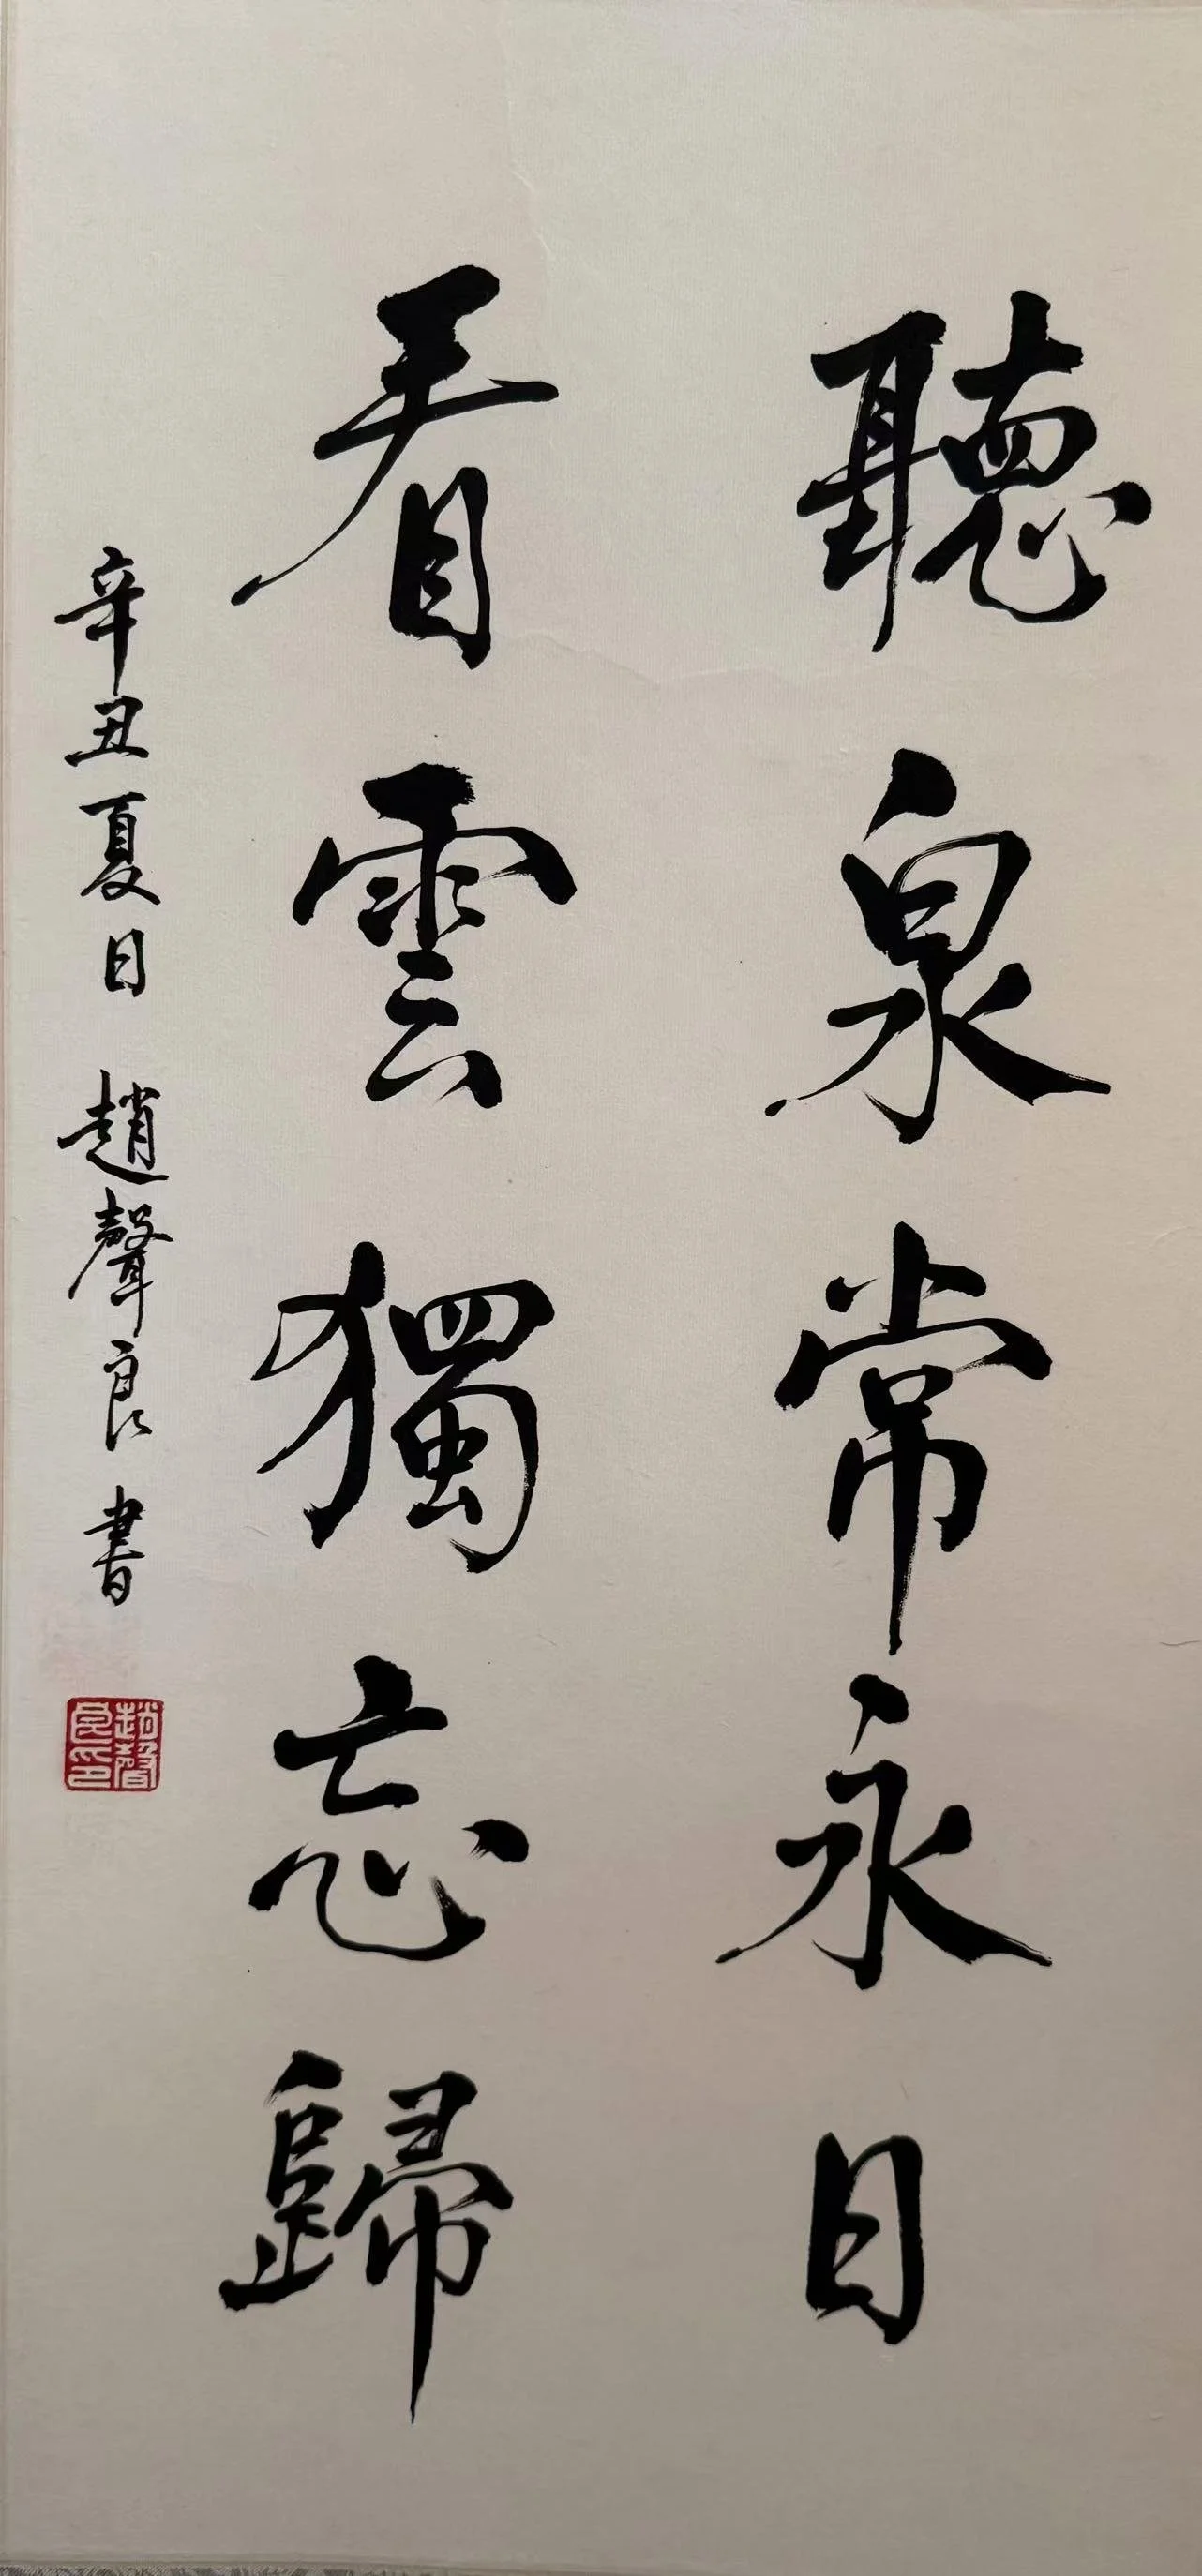 聽泉常永日
看雲獨忘歸
辛丑夏日 趙聲良書
趙聲
良印